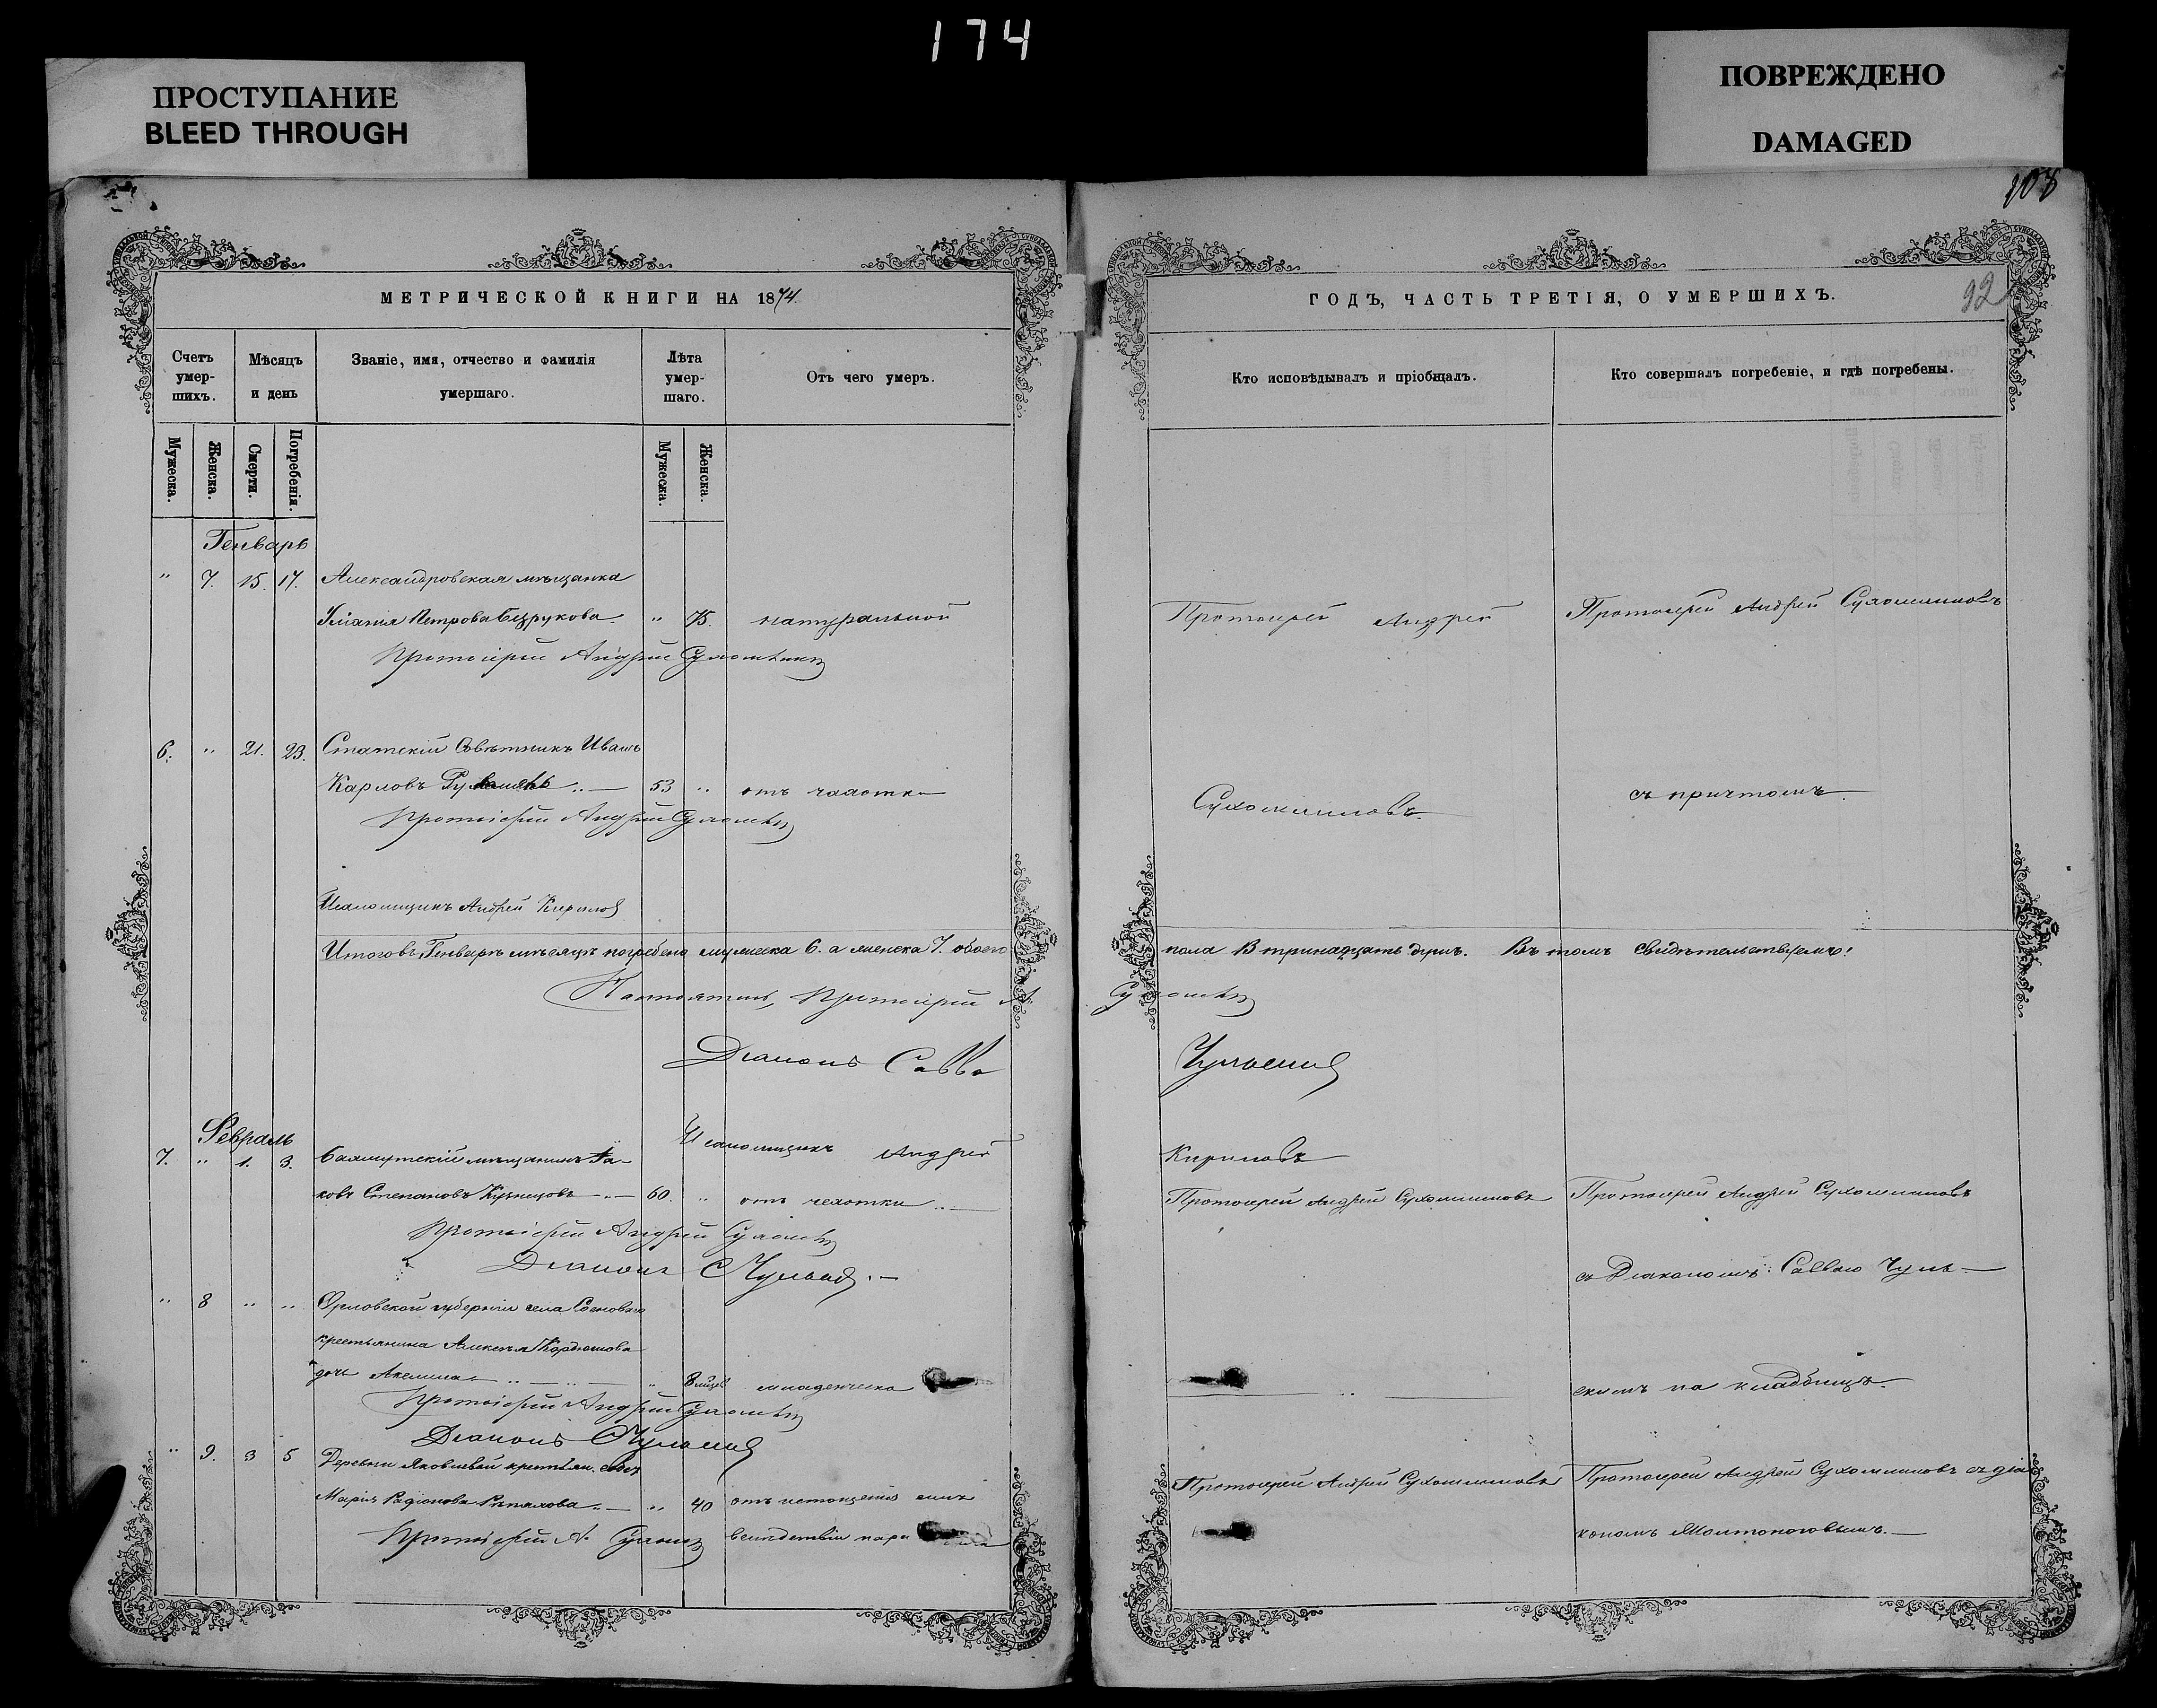 174
ПРОСТУПАНИЕ
BLEED THROUGH
ПОВРЕЖДЕНО
DAMAGED
МЕТРИЧЕСКОЙ КНИГИ НА 1874.
Счетъ умер-шихъ.
Мѣсяцъ и день
Званіе, имя, отчество и фамилія умершаго.
Лѣта умер-шаго.
Отъ чего умеръ.
Мужеска.
Женска.
Смерти.
Погребенія.
Мужеска.
Женска.
Генварь
" 7. 15. 17. Александровская мѣщанка
Петрова Безрукова " 75. натуральной
Протоіерей Андрей
6. " 21. 23. Статскій Совѣтникъ Иванъ
Карловъ 53 " отъ чахотки
Протоіерей Андрей
Псаломщикъ Андрей Кириловъ
Итого въ Генварѣ мѣсяцѣ погребено мужеска 6. а женска 7. обоего
Настоятель, Протоіерей А.
Діаконъ Савва
Псаломщикъ Андрей
Февраль
7. " 1. 3. Бахмутскій мѣщанинъ Іа-
ковъ Степановъ Кузнецовъ 60. " отъ чахотки
Протоіерей Андрей
Діаконъ С
" 8 " " Орловской губерніи села
крестьянина Алексѣя
дочь Акелина " 8 мѣсяц младенческа
Протоіерей Андрей
Діаконъ С
" 9. 3 5 Деревни Яковлевки крестьян.
Марія Радіонова " 40 отъ истощенія силъ
Протоіерей А. вслѣдствіи
108
92
ГОДЪ, ЧАСТЬ ТРЕТІЯ, О УМЕРШИХЪ.
Кто исповѣдывалъ и пріобщалъ.
Кто совершалъ погребеніе, и гдѣ погребены.
Протоіерей Андрей
Протоіерей Андрей Сухомлиновъ
Сухомлиновъ.
съ причтомъ.
пола 13 тринадцать душъ. Въ томъ свидѣтельствуемъ:
Кириловъ
Протоіерей Андрей Сухомлиновъ
Протоіерей Андрей Сухомлиновъ
съ Діакономъ Саввою Чуль-
скимъ на кладбищѣ.
Протоіерей Андрей Сухомлиновъ
Протоіерей Андрей Сухомлиновъ съ діа-
кономъ Молтоноговымъ.